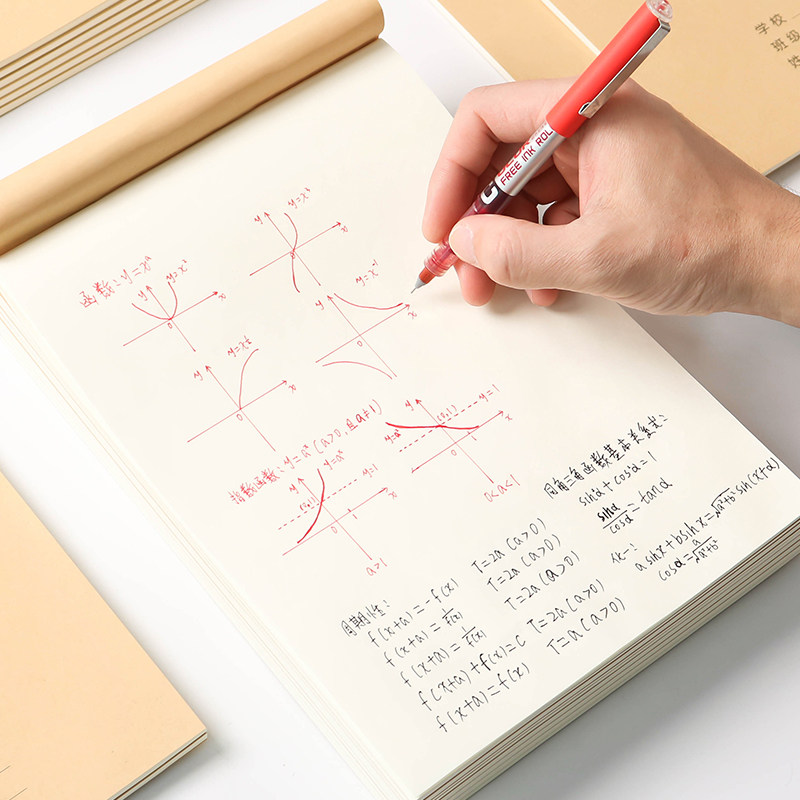 学校
班级
姓
FREE INK ROL
函数:y=xᵃ
y
y=x²
x
0
y
y=x³
x
0
y
y=x⁻¹
x
0
y
y=x½
x
0
指数函数:y=aˣ(a>0,且a≠1)
y
y=aˣ
(0,1)
y=1
x
0
1
a>1
y=aˣ
y
(0,1)
y=1
x
0
1
0<a<1
同角三角函数基本关系式:
sin²α+cos²α=1
sinα/cosα=tanα
化一:
a sinx+b sinx=√a²+b² sin(x+α)
cosα=a/√a²+b²
周期性:
f(x+a)=-f(x) T=2a(a>0)
f(x+a)=1/f(x) T=2a(a>0)
f(x+a)=1/f(x) T=2a(a>0)
f(x+a)+f(x)=C T=2a(a>0)
f(x+a)=f(x) T=a(a>0)